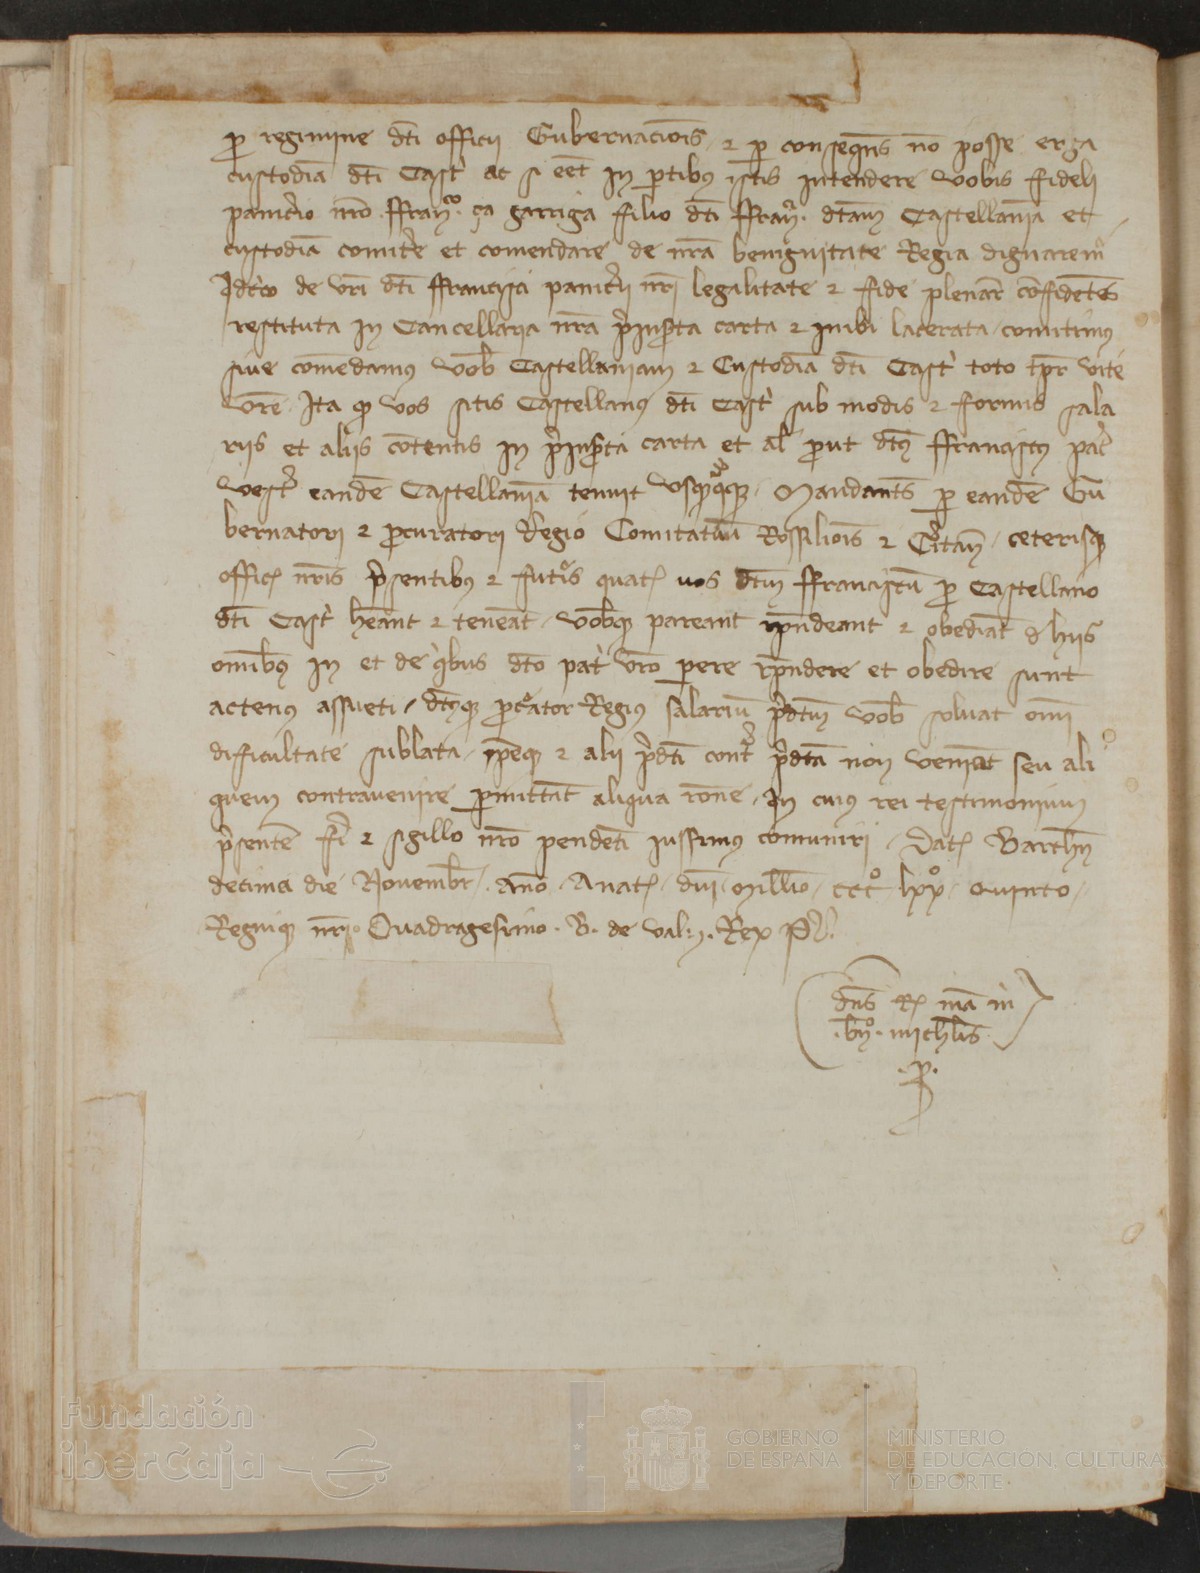 p̱ regimine dc̄i officii Gubernac̄ois ⁊ p̱ conseqn̄s nō posse erga
custodiā dc̄i Castˀ ac si eēt in ꝑtibus istis intendere vobis fideli
panicˀio nr̄o ffranco. ça garriga filio dc̄i ffranˀ. dc̄am Castellaniā et
custodiā comitˀe et comendare de nr̄a benignitate Regia dignaremˀ
Idcˀco de vr̄i dc̄i ffrancisci panicˀii nr̄i legalitate ⁊ fide plenarˀ cōfidētes
restituta in Cancellaria nr̄a p̄inserta carta ⁊ inibi lacerata comittimus
sive comēdamus vob̄ Castellaniam ⁊ Custodiā dc̄i Castˀ toto tp̄r vite
vr̄e. Ita ꝙ vos sitis Castellanus dc̄i Castˀ sub modis ⁊ formis sala
riis et aliis cōtentis in p̄inserta carta et al̄ ꝓut dc̄us ffranciscus patˀ
vestˀ eandē Castellaniā tenuit usq̄quaq̄. Mandantēs ꝑ eandē Gu
bernatori ⁊ ꝓcuratori Regio Comitatuū Rossilioīs ⁊ Cˀitan̄ ceterisq̄
offic̄ nr̄is p̄sentibus ⁊ futˀis quatˀ vos dc̄m ffranciscū ꝓ Castellano
dc̄i Castˀ hēant ⁊ teneāt vob̄q̄ pareant rn̄deant ⁊ obediāt de hiis
omīb̄s in et de qˀbus dc̄o patˀ vr̄o ꝑere rn̄dere et obedire sunt
actenus assueti, dc̄usq̄ ꝓcˀator Regius salariū p̄dc̄m vob̄ solvat omī
difficultate sublata, ip̄eq̄ ⁊ alii p̄dc̄i contˀ p̄dc̄a non veniāt seu ali
quem contravenire ꝑmittāt aliqua rōne. In cuius rei testimonium
p̄sentē fiˀ ⁊ sigillo nr̄o pendēti iussimus comuniri. Datˀ Barchn̄
decima die Novembr̄. Anō. Anatˀ. dnī. Millīo. ccc° lxx° quinto.
Regniq̄ nr̄i. Quadragesimo. B. de val: ⁊. Rex P.
dn̄s Rˀ mā m
bn̄° michīs
.p.
Fundación
iberCaja
GOBIERNO
DE ESPAÑA
MINISTERIO
DE EDUCACIÓN, CULTURA
Y DEPORTE